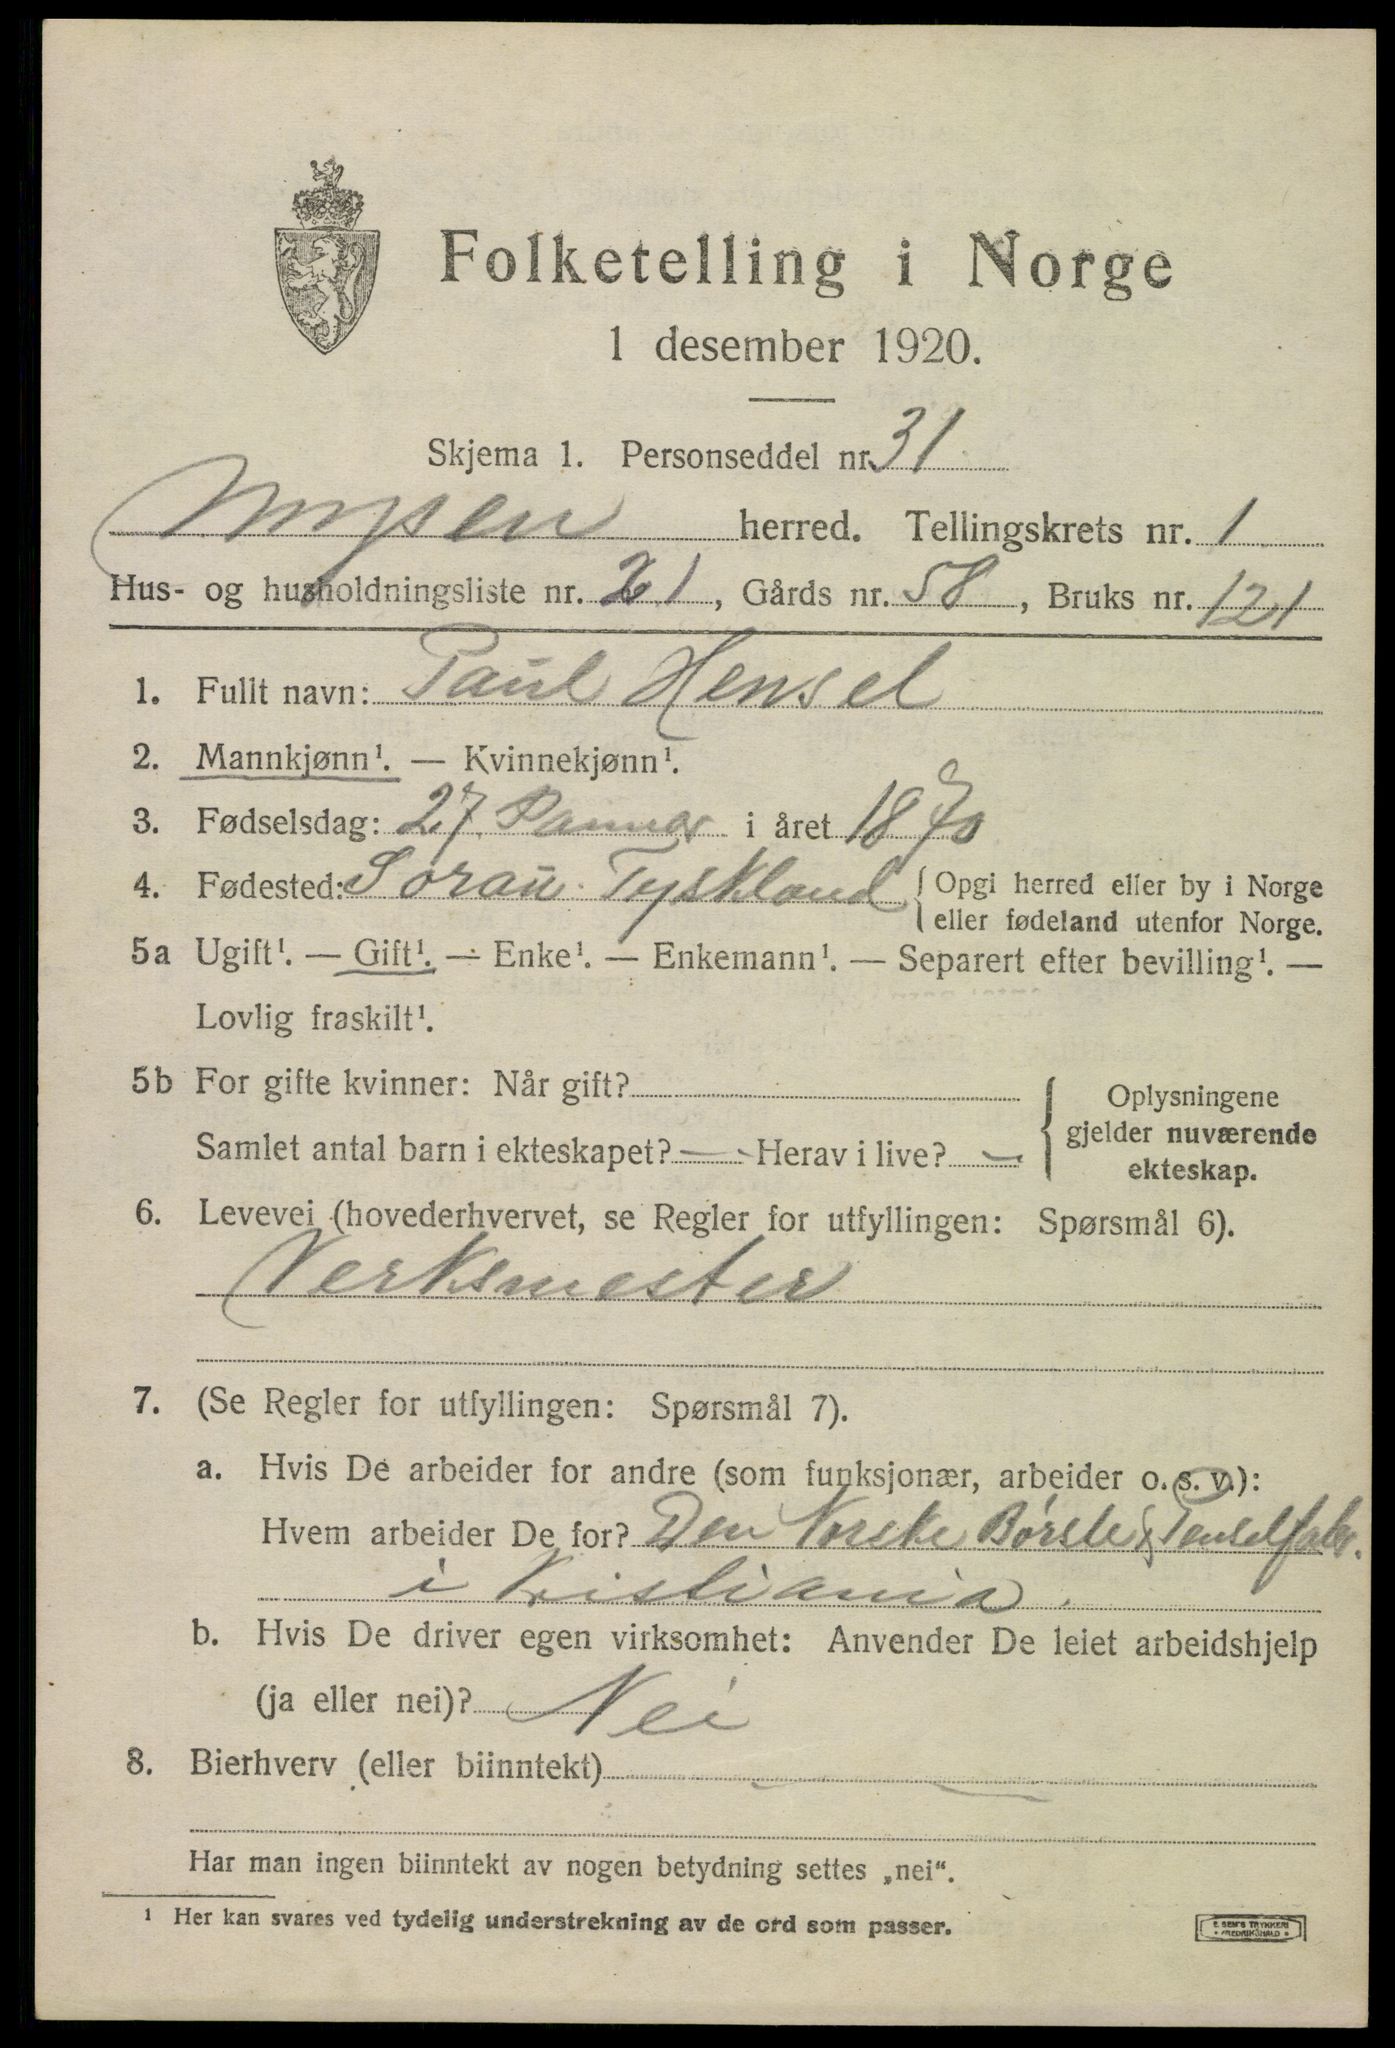 Folketelling i Norge
1 desember 1920.
Skjema 1. Personseddel nr. 31
Mysen herred. Tellingskrets nr. 1
Hus- og husholdningsliste nr. 21, Gårds nr. 58, Bruks nr. 121
1. Fullt navn: Paul Hensel
2. Mannkjønn¹. — Kvinnekjønn¹.
3. Fødselsdag: 27 Januar i året 1870
4. Fødested: Sorau. Tyskland { Opgi herred eller by i Norge
eller fødeland utenfor Norge.
5a Ugift¹. — Gift¹. — Enke¹. — Enkemann¹. — Separert efter bevilling¹. —
Lovlig fraskilt¹.
5b For gifte kvinner: Når gift?
Samlet antal barn i ekteskapet? — Herav i live? —
Oplysningene
gjelder nuværende
ekteskap.
6. Levevei (hovederhvervet, se Regler for utfyllingen: Spørsmål 6).
Verksmester
7. (Se Regler for utfyllingen: Spørsmål 7).
a. Hvis De arbeider for andre (som funksjonær, arbeider o. s. v.):
Hvem arbeider De for? Den Norske Børste & Penselfabr.
i Kristiania.
b. Hvis De driver egen virksomhet: Anvender De leiet arbeidshjelp
(ja eller nei)? Nei
8. Bierhverv (eller biinntekt) —
Har man ingen biinntekt av nogen betydning settes „nei“.
¹ Her kan svares ved tydelig understrekning av de ord som passer.
E. SEM'S TRYKKERI
FREDRIKSHALD